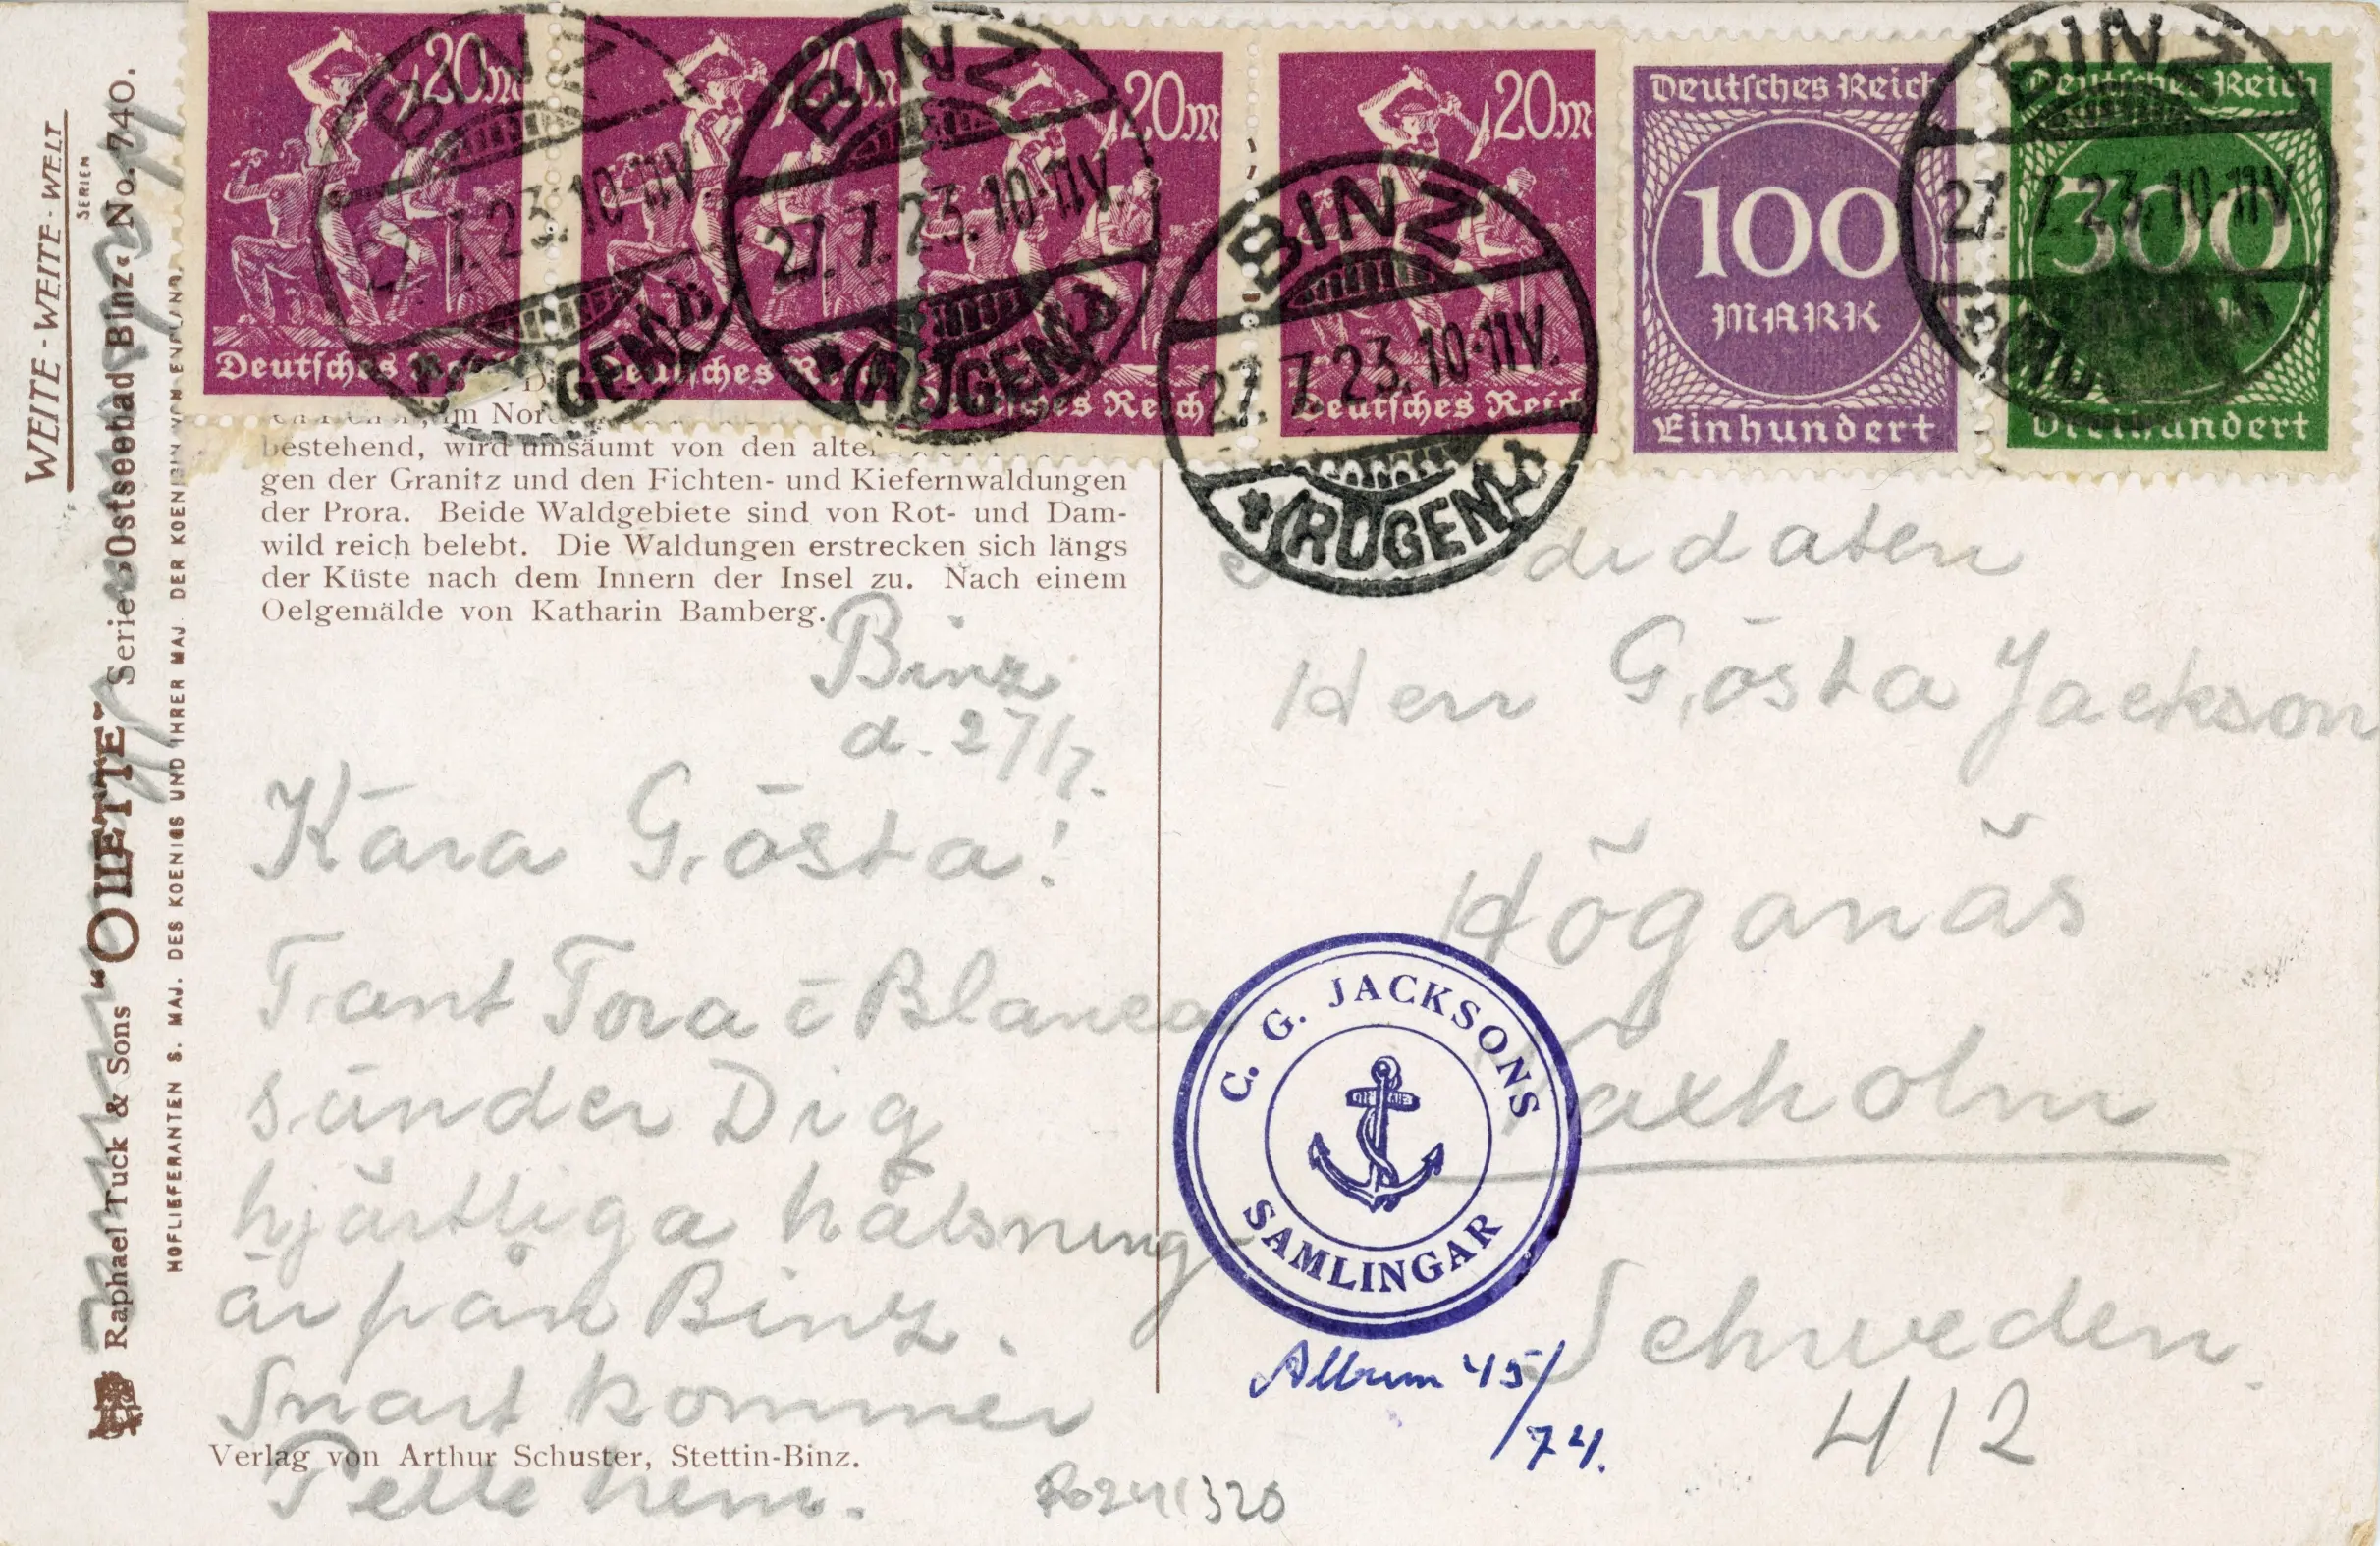 20m
20m
20m
20m
Deutsches Reich
100
MARK
Einhundert
Deutsches Reich
300
Dreihundert
Deutsches
Deutsches Reich
Deutsches Reich
Deutsches Reich
BINZ
27.7.23.10-11V.
*(RÜGEN)A
BINZ
27.7.23.10-11V.
*(RÜGEN)A
BINZ
27.7.23.10-11V.
*(RÜGEN)A
BINZ
27.7.23.10-11V
WEITE-WEITE-WELT
SERIEN
Raphael Tuck & Sons “OILETTE” Serie »Ostseebad Binz« No. 740.
HOFLIEFERANTEN S. MAJ. DES KOENIGS UND IHRER MAJ. DER KOENIGIN VON ENGLAND.
bestehend, wird umsäumt von den alten
gen der Granitz und den Fichten- und Kiefernwaldungen
der Prora. Beide Waldgebiete sind von Rot- und Dam-
wild reich belebt. Die Waldungen erstrecken sich längs
der Küste nach dem Innern der Insel zu. Nach einem
Oelgemälde von Katharin Bamberg.
Binz
d. 27/7.
Kära Gösta!
Tant Tora o Blanca
sänder Dig
hjärtliga hälsning-
ar från Binz.
Snart kommer
Pelle hem.
Verlag von Arthur Schuster, Stettin-Binz.
didaten
Herr Gösta Jackson
Höganäs
Vaxholm
Schweden
412
C. G. JACKSONS
SAMLINGAR
Album 45/
74.